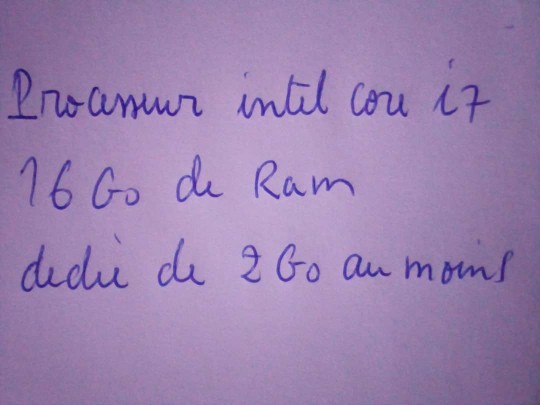 Processeur intel core i7
16 Go de Ram
dedié de 2 Go au moins